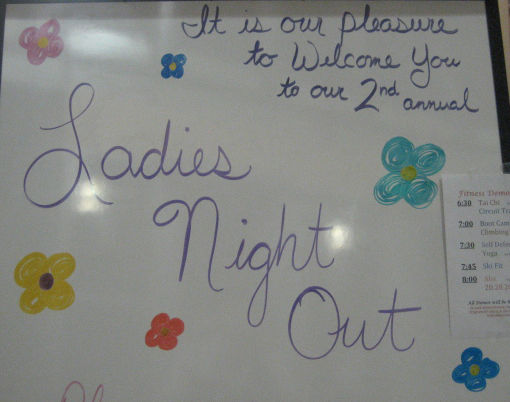 It is our pleasure
to Welcome You
to our 2nd annual
Ladies
Night
Out
Fitness Demo
6:30 Tai Chi
Circuit Tra
7:00 Boot Cam
Climbing
7:30 Self Defe
Yoga
7:45 Ski Fit
8:00 Abs
20/20/20